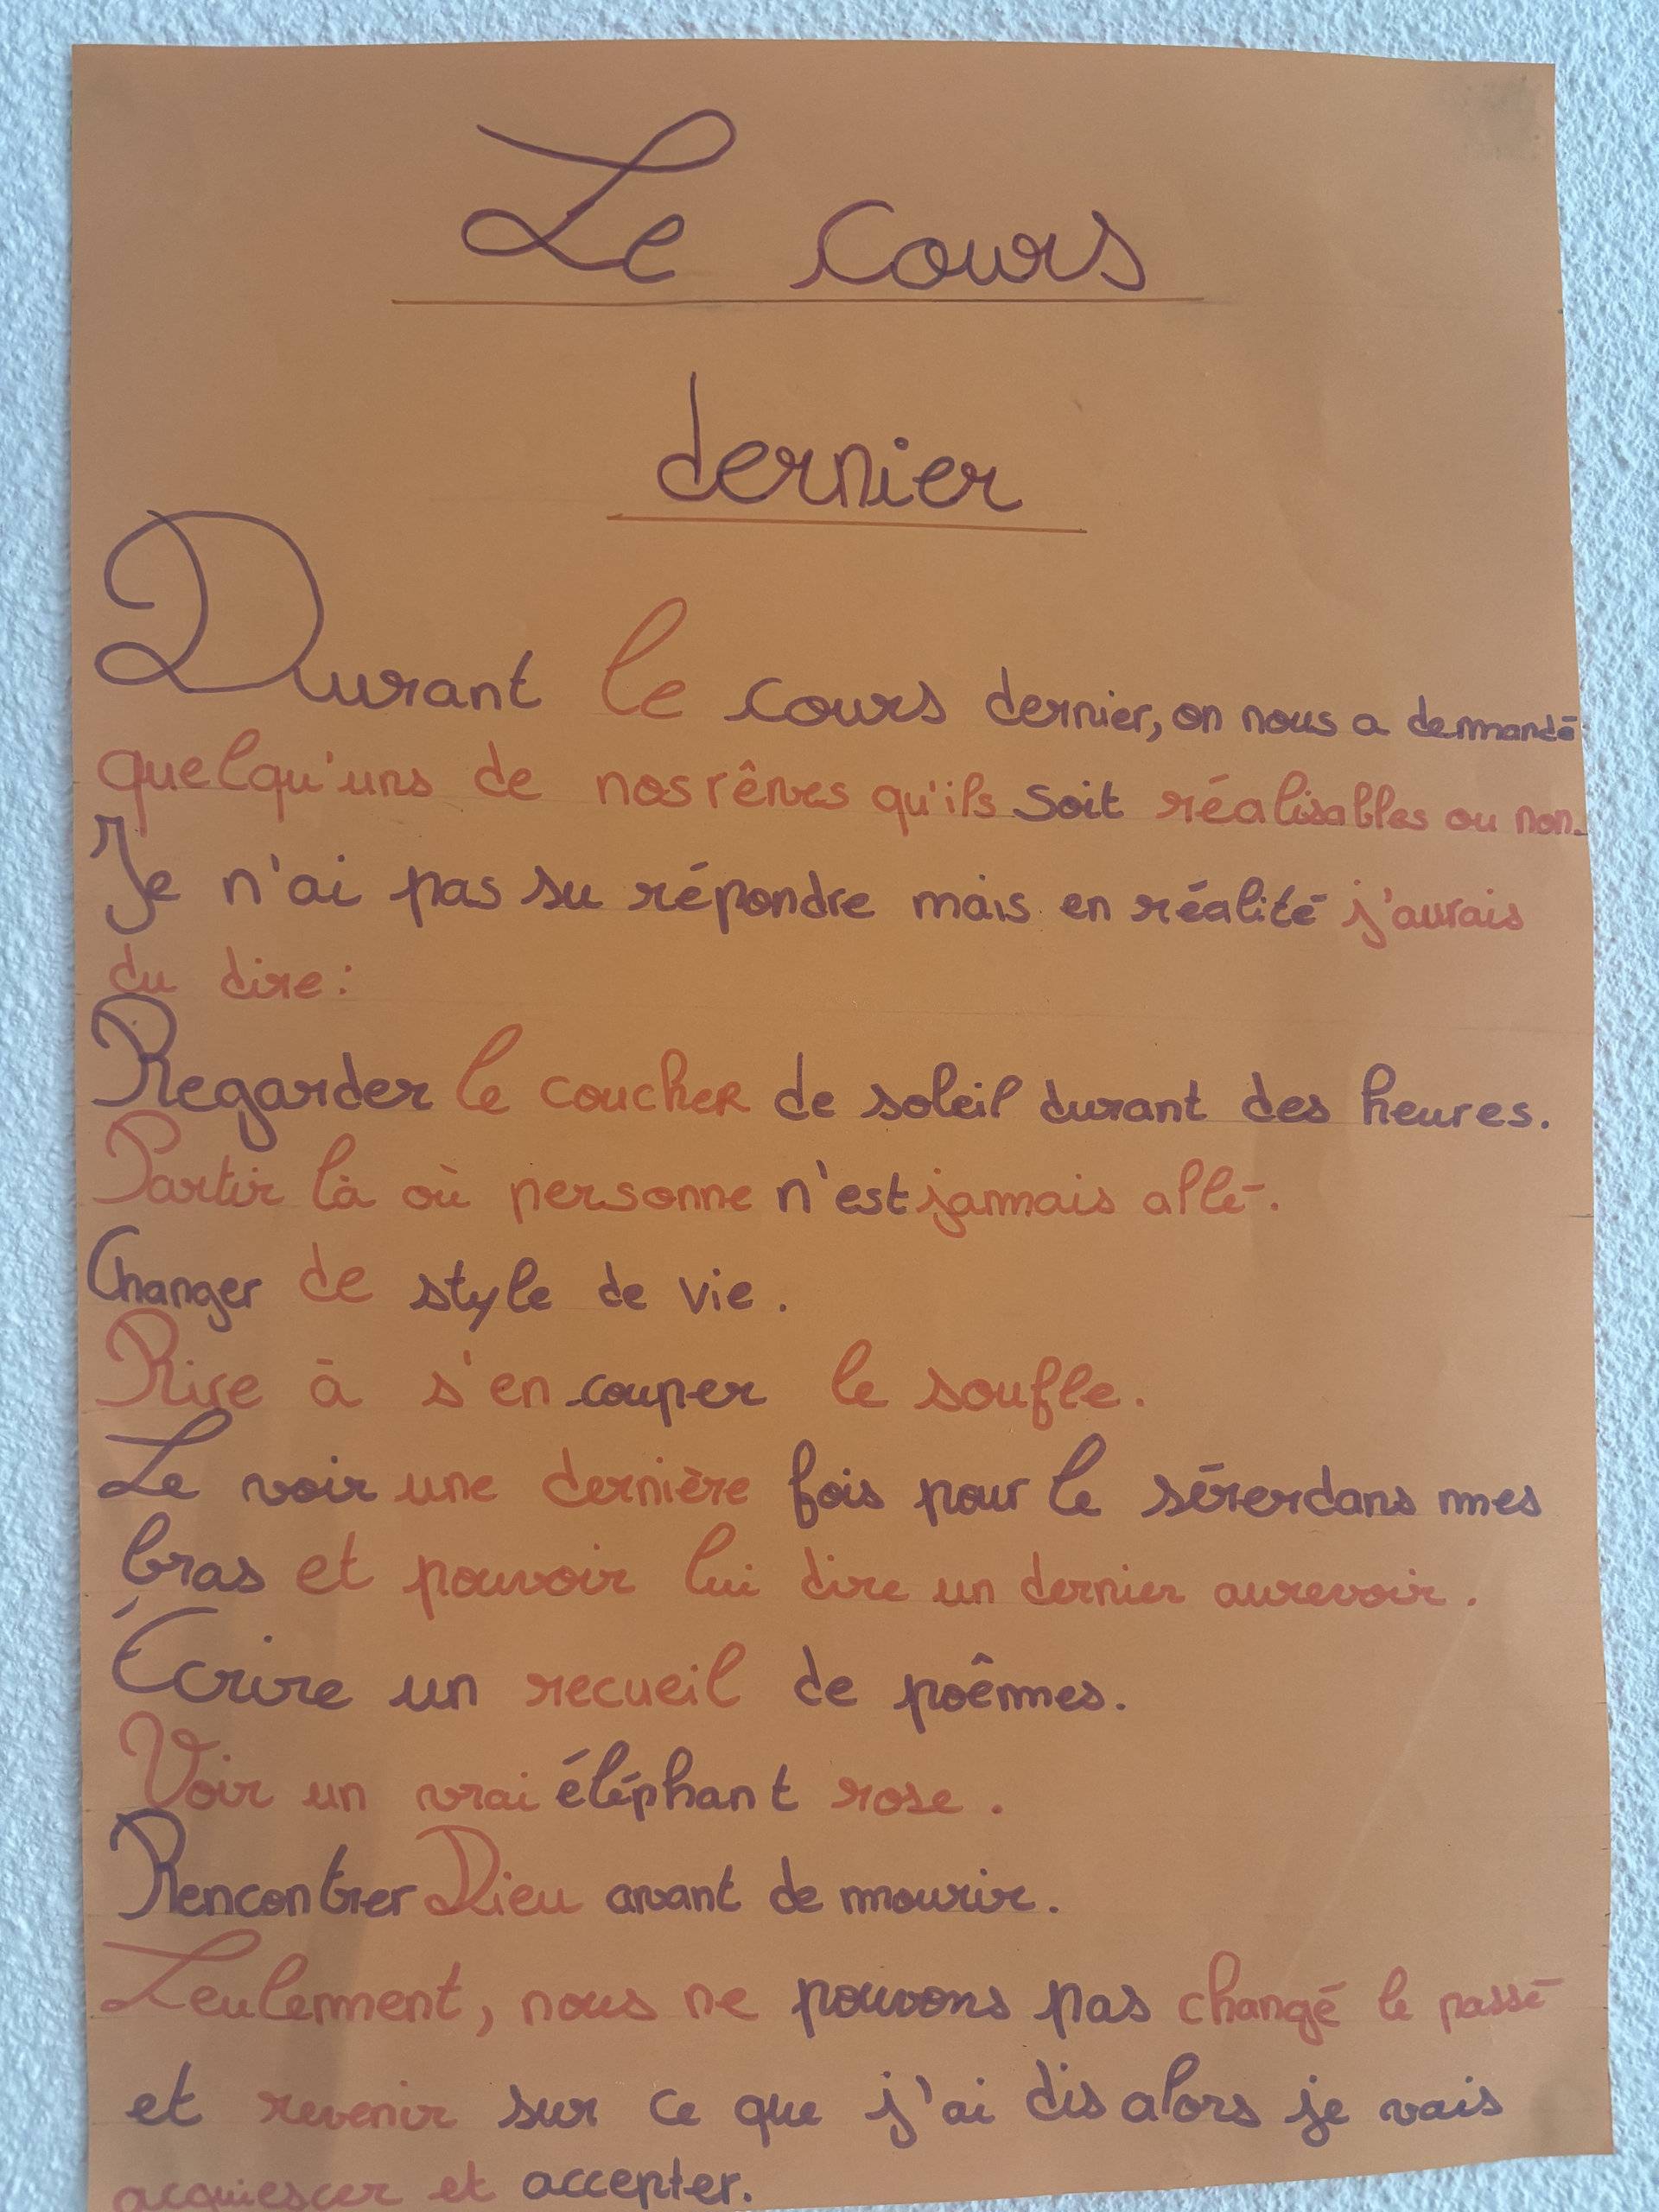 Le cours
dernier
Durant le cours dernier, on nous a demandé
quelqu'uns de nos rêves qu'ils soit réalisables ou non.
Je n'ai pas su répondre mais en réalité j'aurais
du dire :
Regarder le coucher de soleil durant des heures.
Partir là où personne n'est jammais allé.
Changer de style de vie.
Rire à s'en couper le soufle.
Le voir une dernière fois pour le sérer dans mes
bras et pouvoir lui dire un dernier aurevoir.
Écrire un recueil de poêmes.
Voir un vrai éléphant rose.
Rencontrer Dieu avant de mourir.
Seulement, nous ne pouvons pas changé le passé
et revenir sur ce que j'ai dis alors je vais
acquiescer et accepter.